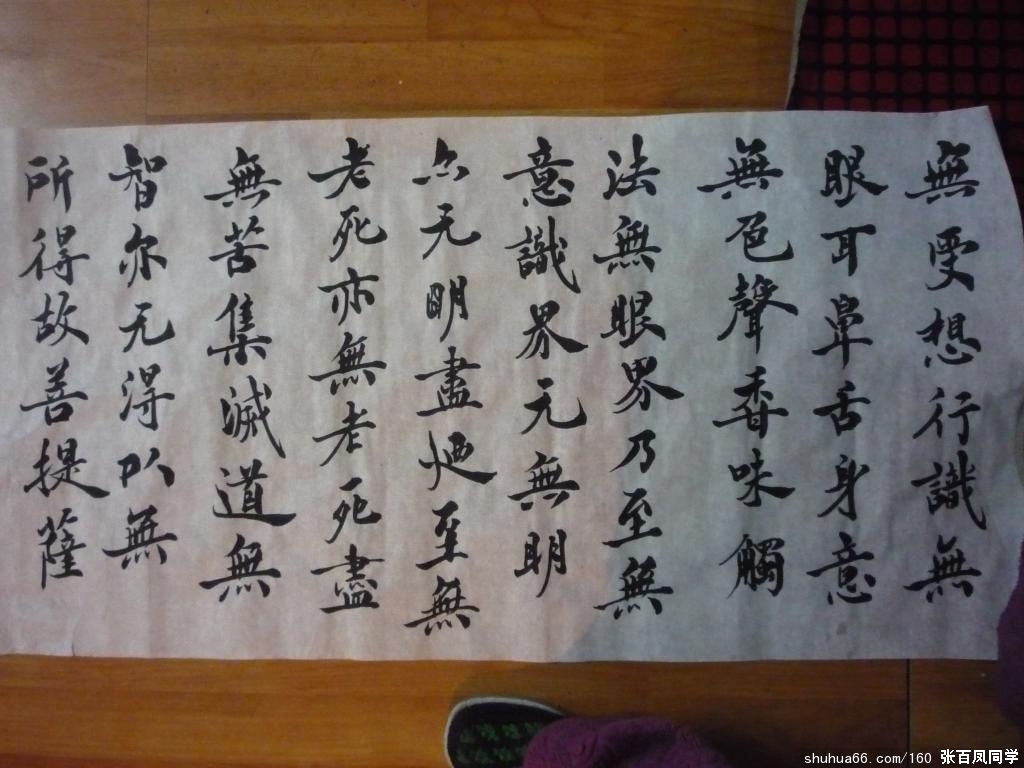 無受想行識無
眼耳鼻舌身意
無色聲香味觸
法無眼界乃至無
意識界无無明
亦无明盡乃至無
老死亦無老死盡
無苦集滅道無
智亦无得以無
所得故菩提薩
shuhua66.com/160 张百凤同学